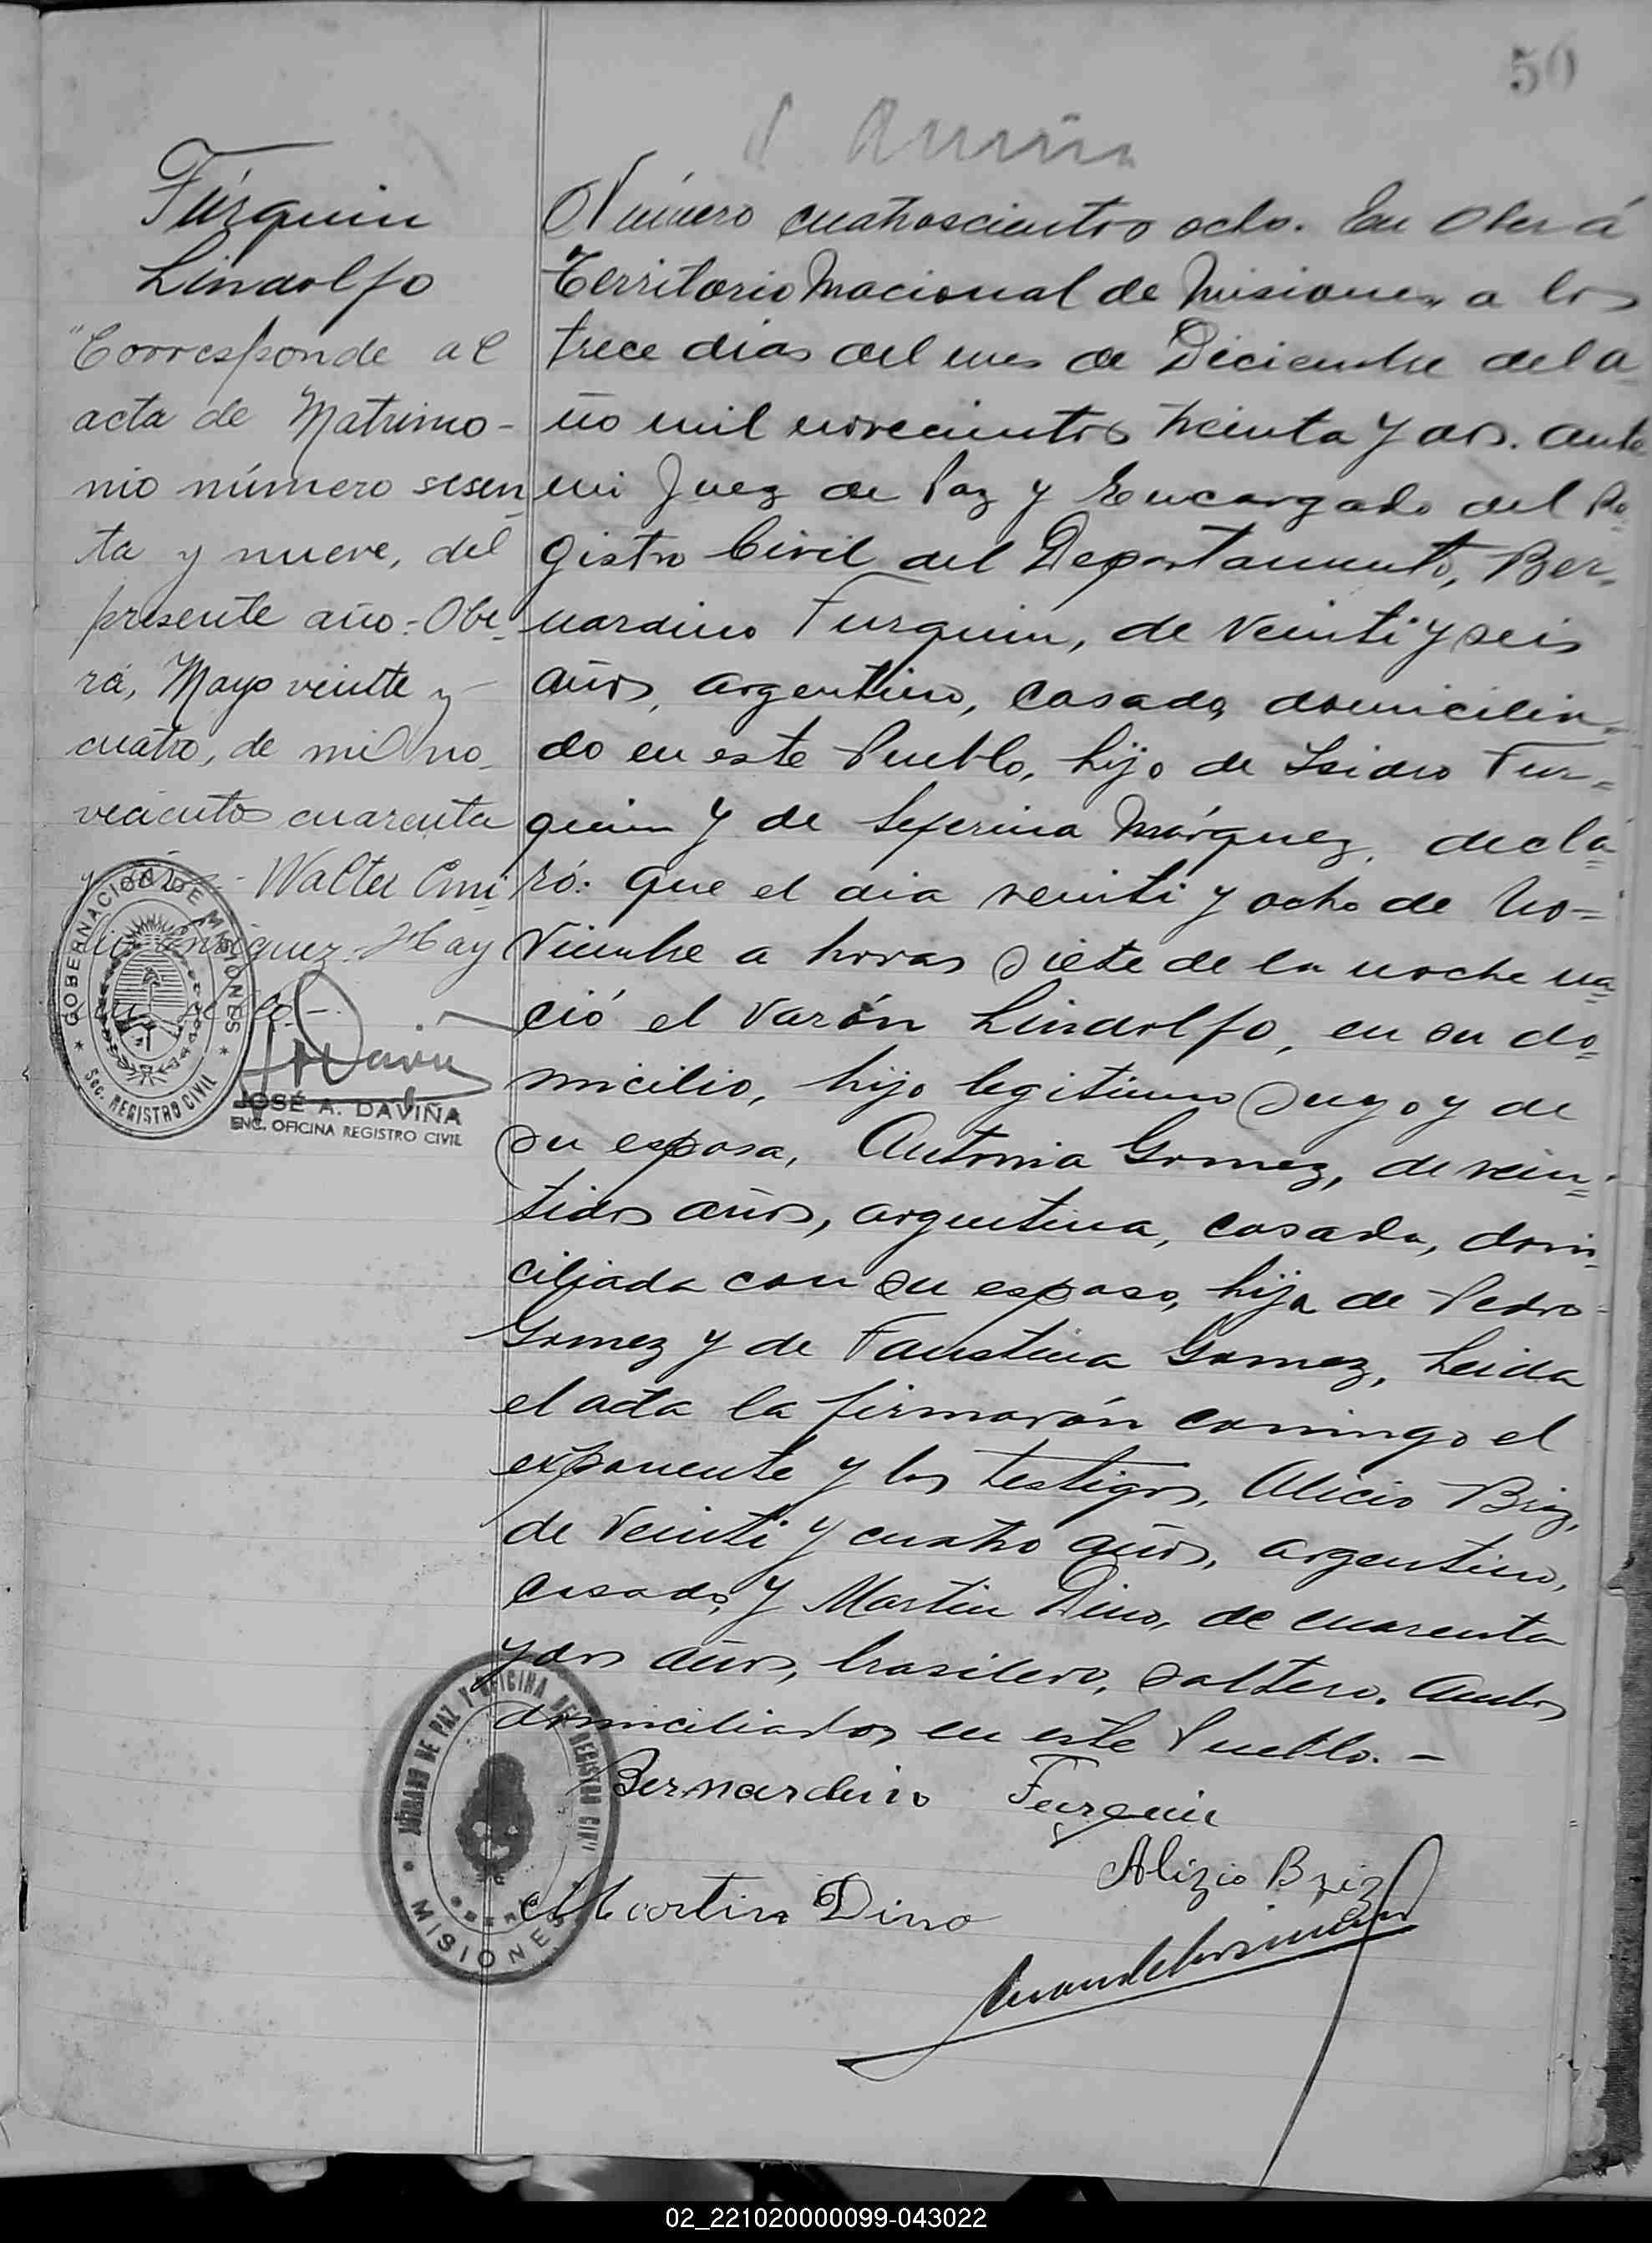 50
Fúrquin
Lindolfo
"Corresponde al
acta de Matrimo-
nio número sesen-
ta y nueve, del
presente año.- Obe-
rá, Mayo veinte y
cuatro, de mil no-
vecientos cuarenta
Walter Emi
Enriquez.- Hay
un sello.-
GOBERNACION DE MISIONES
SEC. REGISTRO CIVIL
JOSÉ A. DAVIÑA
ENC. OFICINA REGISTRO CIVIL
Número cuatroscientos ocho. En Oberá
Territorio Nacional de Misiones, a los
trece dias del mes de Diciembre del a-
ño mil novecientos treinta y dos. ante
mi Juez de Paz y Encargado del Re-
gistro Civil del Departamento, Ber-
nardino Furquin, de veinti y seis
años, argentino, casado, domicilia-
do en este Pueblo, hijo de Isidro Fur-
quin y de Seferina Márquez, decla-
ró: que el dia veinti y ocho de No-
viembre a horas siete de la noche na-
ció el varón Lindolfo, en su do-
micilio, hijo legitimo suyo y de
su esposa, Antonia Gomez, de vein-
tidos años, argentina, casada, domi-
ciliada con su esposo, hija de Pedro
Gomez y de Faustina Gomez, Leida
el acta la firmarón conmigo el
exponente y los testigos, Alicio Briz,
de veinti y cuatro años, argentino,
casado, y Martin Dino, de cuarenta
y dos años, brasilero, soltero. Ambos
domiciliados en este Pueblo.-
Bernardino Furquin
Alizio Briz
Martin Dino
JUZGADO DE PAZ Y OFICINA DEL REGISTRO CIVIL
OBERA
MISIONES
02_221020000099-043022